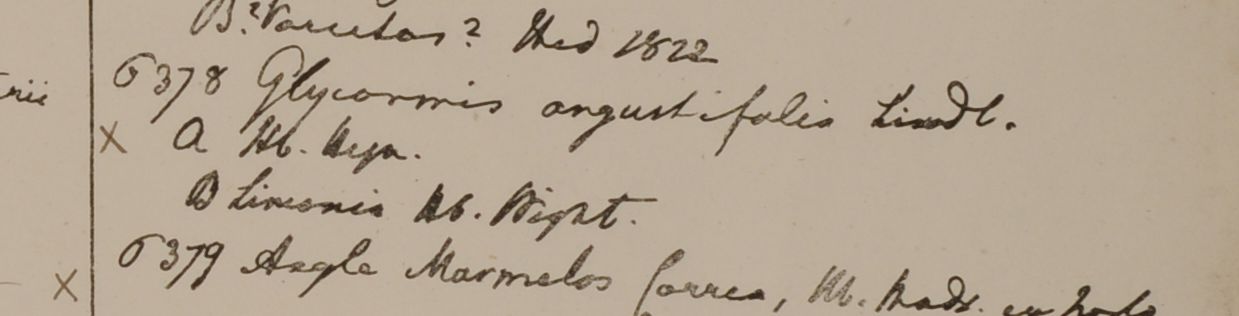 B? Varietas? Hed 1822
rii
6378 Glycosmis angustifolia Lindl.
X a Hb. Heyn.
B Limonia Hb. Wight.
6379 Aegle Marmelos Correa, Hb. Madr.
X